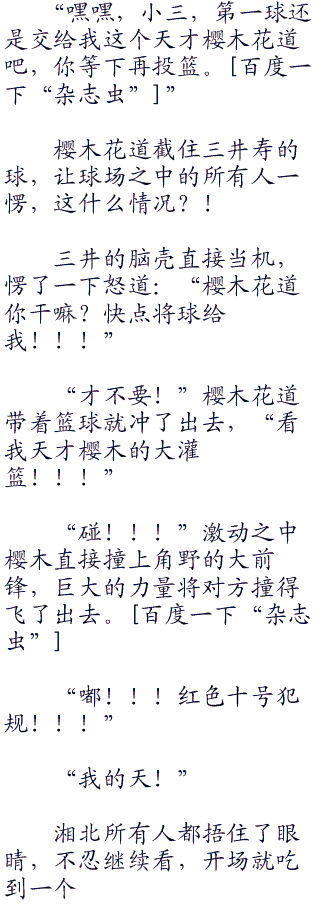 “嘿嘿，小三，第一球还
是交给我这个天才樱木花道
吧，你等下再投篮。[百度一
下“杂志虫”]”
樱木花道截住三井寿的
球，让球场之中的所有人一
愣，这什么情况？！
三井的脑壳直接当机，
愣了一下怒道：“樱木花道
你干嘛？快点将球给
我！！！”
“才不要！”樱木花道
带着篮球就冲了出去，“看
我天才樱木的大灌
篮！！！”
“碰！！！”激动之中
樱木直接撞上角野的大前
锋，巨大的力量将对方撞得
飞了出去。[百度一下“杂志
虫”]
“嘟！！！红色十号犯
规！！！”
“我的天！”
湘北所有人都捂住了眼
睛，不忍继续看，开场就吃
到一个